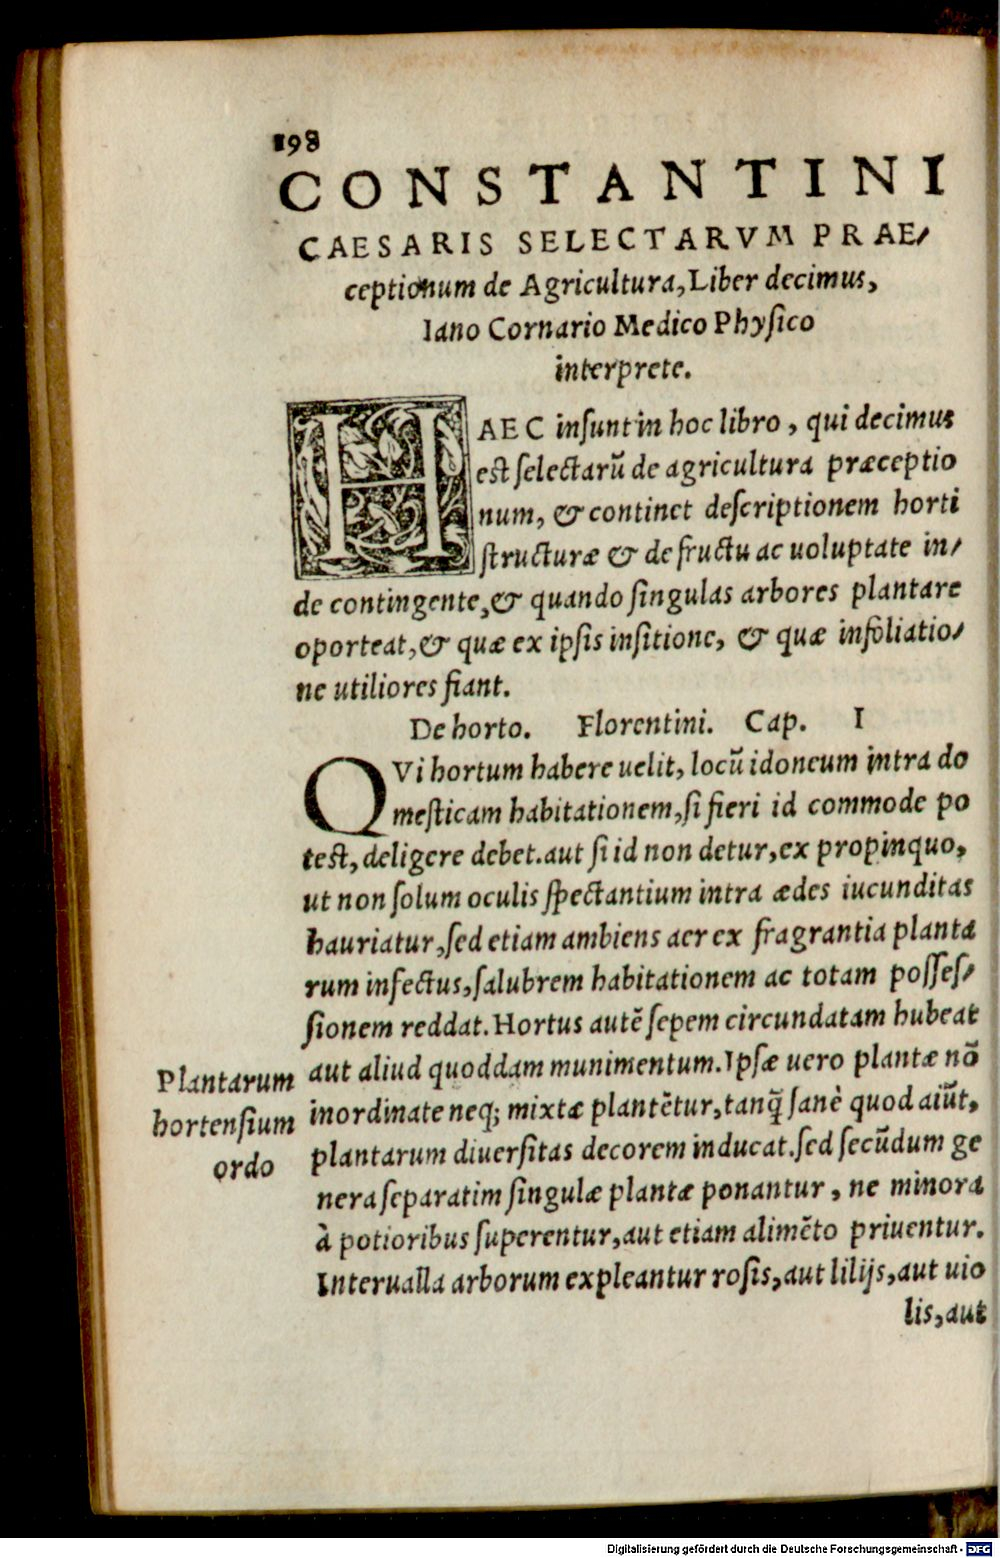 198
CONSTANTINI
CAESARIS SELECTARVM PRAE/
ceptionum de Agricultura, Liber decimus,
Iano Cornario Medico Physico
interprete.
HAEC insunt in hoc libro, qui decimus
est selectarũ de agricultura præceptio
num, & continet descriptionem horti
structuræ & de fructu ac uoluptate in/
de contingente, & quando singulas arbores plantare
oporteat, & quæ ex ipsis insitione, & quæ infoliatio/
ne utiliores fiant.
De horto. Florentini. Cap. I
QVi hortum habere uelit, locũ idoneum intra do
mesticam habitationem, si fieri id commode po
test, deligere debet. aut si id non detur, ex propinquo,
ut non solum oculis spectantium intra ædes iucunditas
hauriatur, sed etiam ambiens aer ex fragrantia planta
rum infectus, salubrem habitationem ac totam posses/
sionem reddat. Hortus autẽ sepem circundatam hubeat
aut aliud quoddam munimentum. Ipsæ uero plantæ nõ
inordinate neq; mixtæ plantẽtur, tanq̃ sanè quod aiũt,
plantarum diuersitas decorem inducat. sed secũdum ge
nera separatim singulæ plantæ ponantur, ne minora
à potioribus superentur, aut etiam alimẽto priuentur.
Interualla arborum expleantur rosis, aut lilijs, aut uio
lis, aut
Plantarum
hortensium
ordo
Digitalisierung gefördert durch die Deutsche Forschungsgemeinschaft - DFG